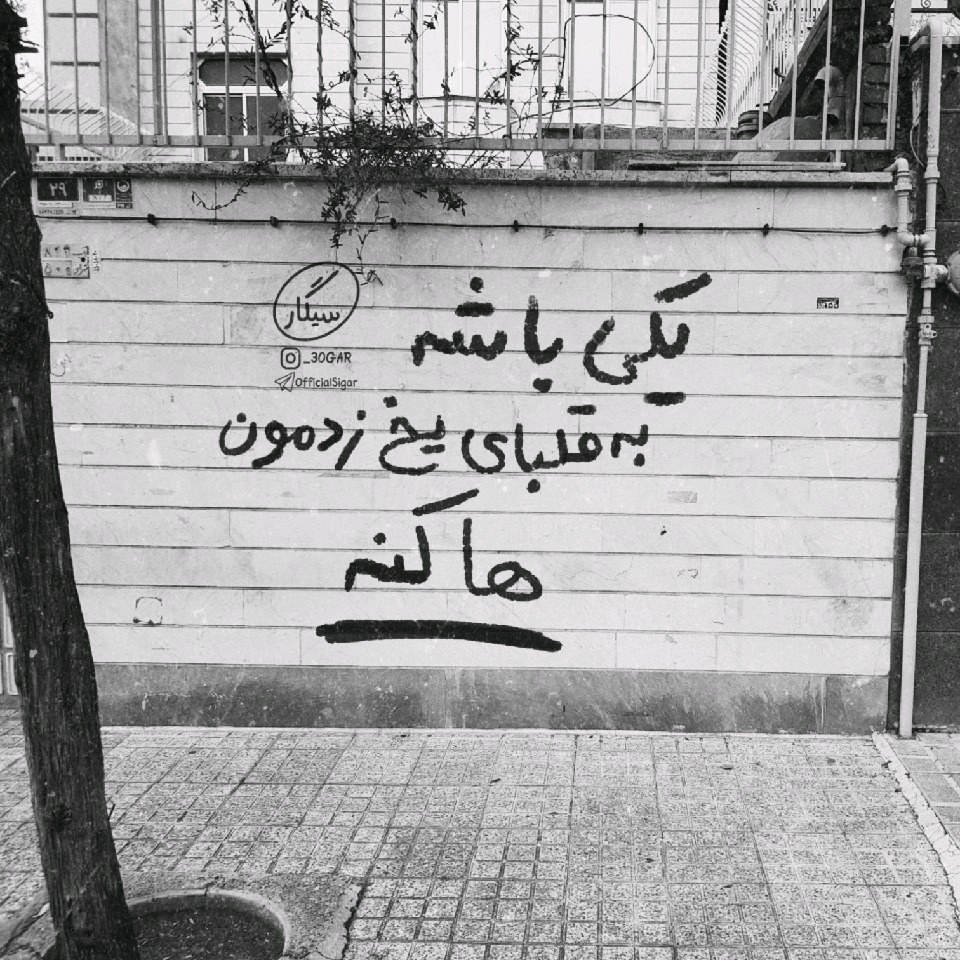 یکی باشه
به قلبای یخ زدمون
ها کنه
سیگار
_30GAR
OfficialSigar
۲۹